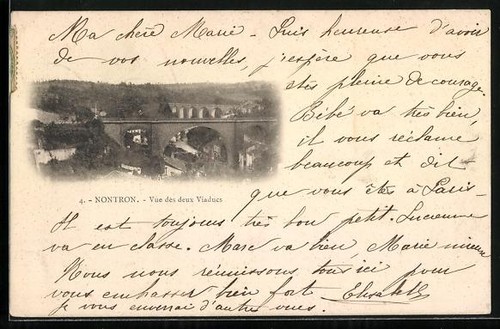 Ma chère Marie - Suis heureuse d'avoir
de vos nouvelles, j'espère que vous
etes pleine de courage.
Bébé va très bien,
il vous réclame
beaucoup et dit
que vous êtes à Paris-
4. - NONTRON. - Vue des deux Viaducs
Il est toujours très bon petit. Lucienne
va en classe. Marc va bien, Marie mieux
Nous nous réunissons tous ici pour
vous embrasser bien fort Elisabeth
je vous enverrai d'autres vues.